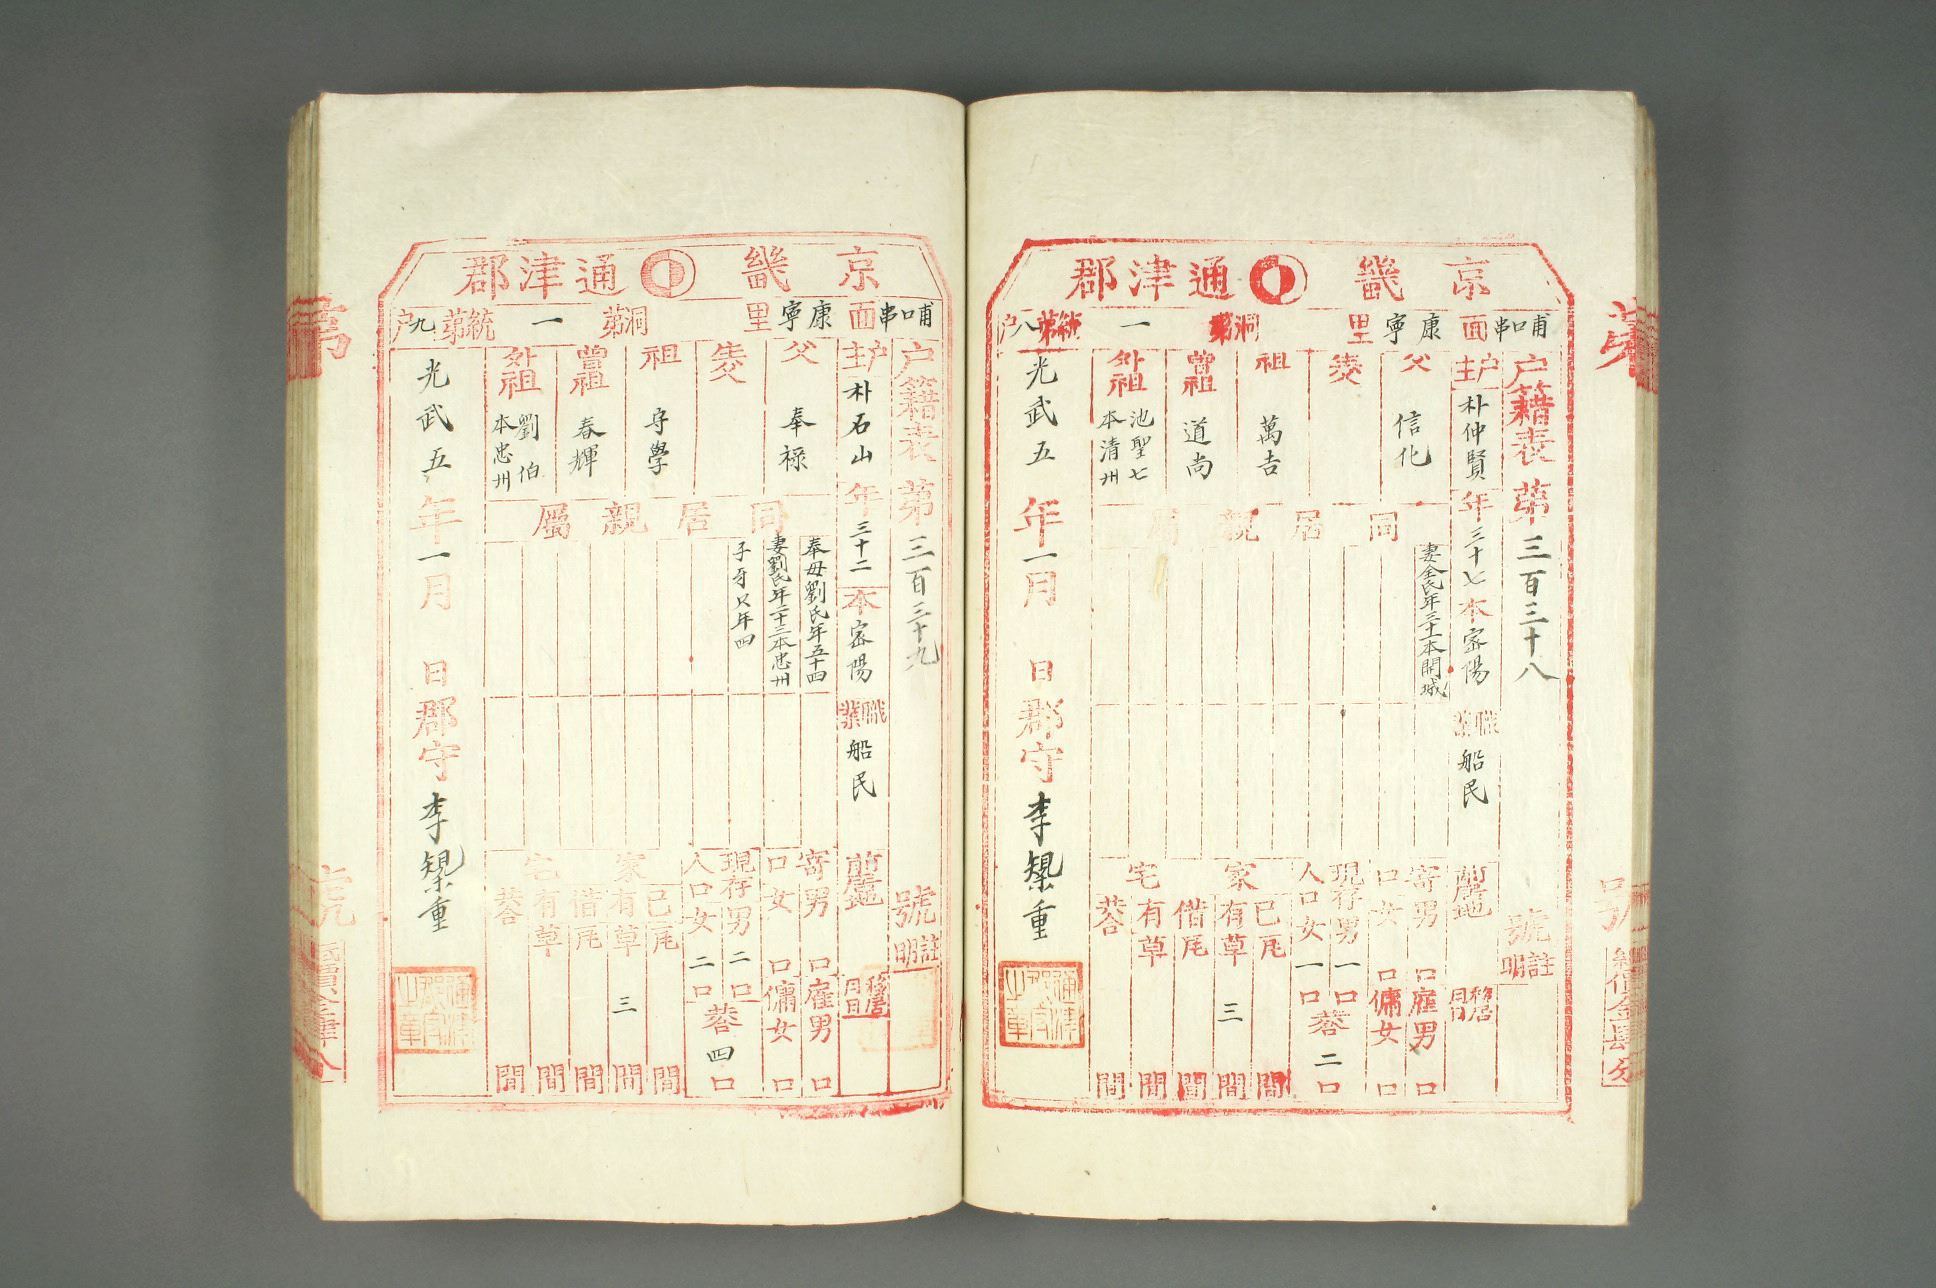 京畿 通津郡
哺口串面 康寧里 洞第一 統第八户
户籍表 第三百三十八 號
註明
户主 朴仲賢 年三十七 本密陽 職業 船民
前居地
移居 月日
父 信化
生父
祖 萬吉
曾祖 道尚
外祖 池聖七 本清州
同居親屬
妻金氏年三十一本開城
寄口 男 口 女 口
雇男 口 傭女 口
現存人口 男一口 女一口 共二口
家宅
己有 瓦 間 草 三間
借有 瓦 間 草 間
共合 間
光武五年一月 日 郡守 李㮚重
京畿 通津郡
哺口串面 康寧里 洞第一 統第九户
户籍表 第三百三十九 號
註明
户主 朴石山 年三十二 本密陽 職業 船民
前居地
移居 月日
父 奉祿
生父
祖 守學
曾祖 春輝
外祖 劉伯 本忠州
同居親屬
奉母劉氏年五十四
妻劉氏年二十三本忠州
子 年四
寄口 男 口 女 口
雇男 口 傭女 口
現存人口 男二口 女二口 共四口
家宅
己有 瓦 間 草 三間
借有 瓦 間 草 間
共合 間
光武五年一月 日 郡守 李㮚重